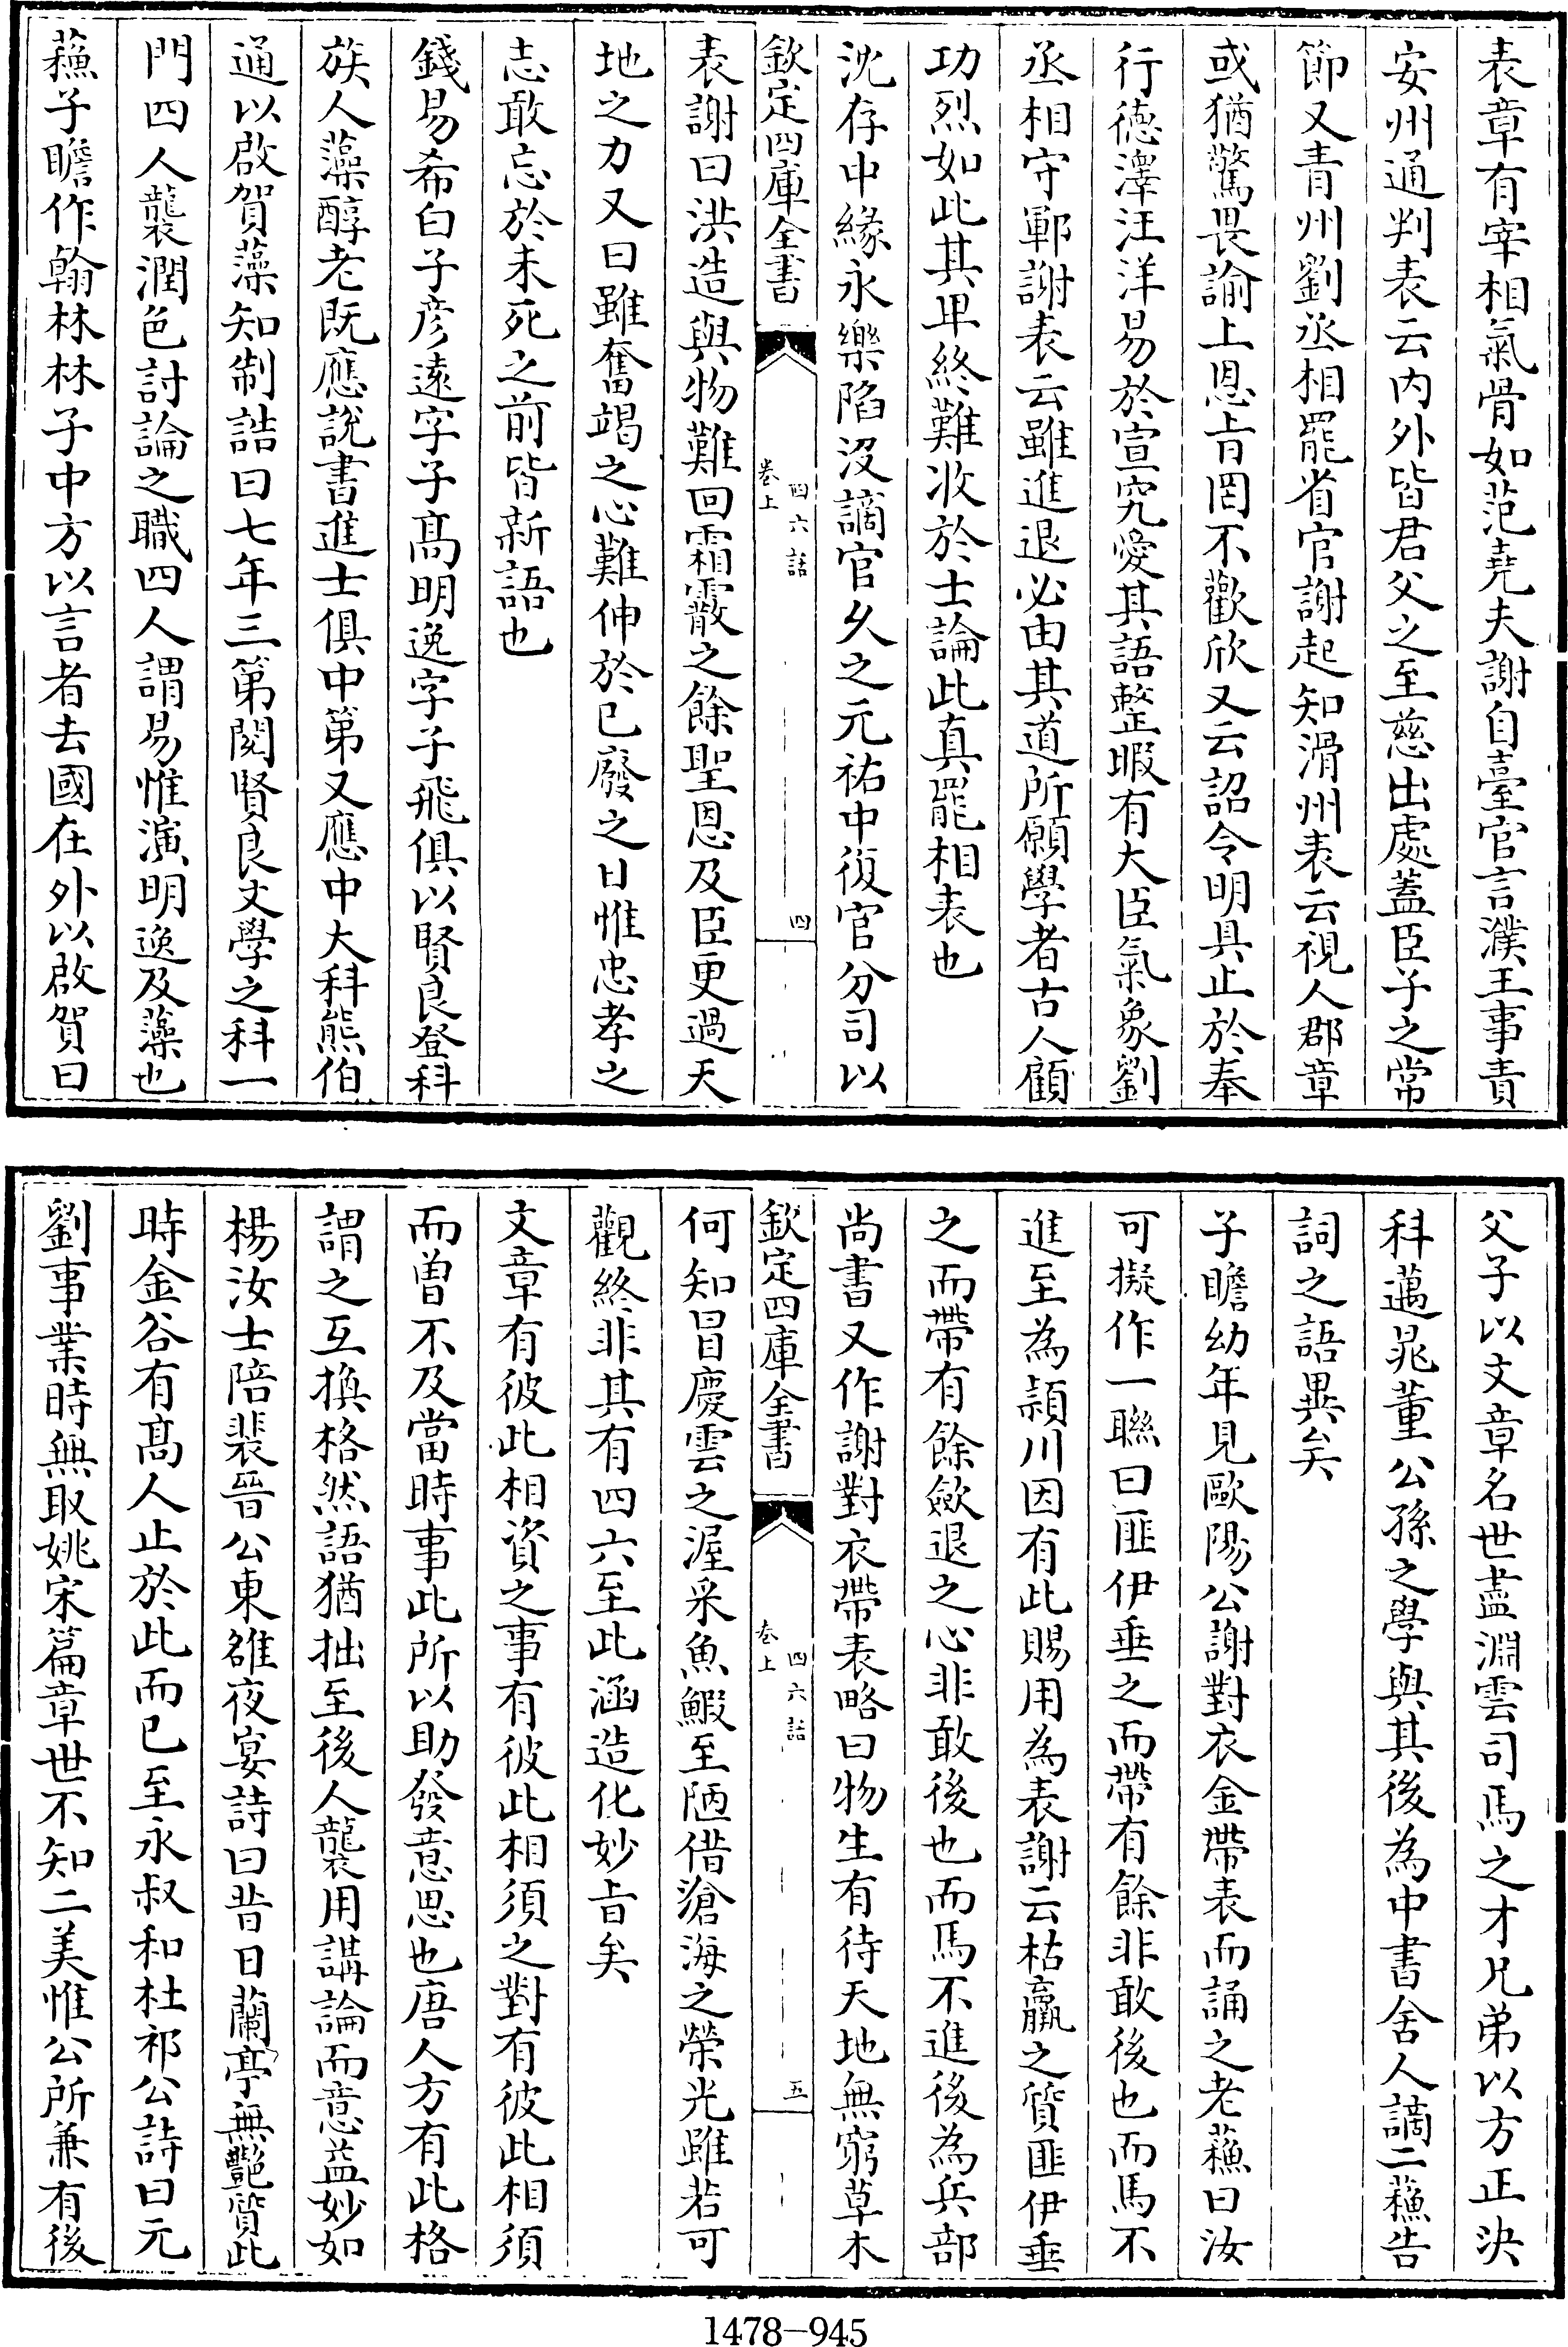 表章有宰相氣骨如范堯夫謝自臺官言濮王事責
安州通判表云内外皆君父之至慈出處蓋臣子之常
節又青州劉丞相罷省官謝起知滑州表云視人郡章
或猶驚畏諭上恩㫖罔不歡欣又云詔令明具止於奉
行德澤汪洋易於宣究愛其語整暇有大臣氣象劉
丞相守鄆謝表云雖進退必由其道所願學者古人顧
功烈如此其卑終難收於士論此真罷相表也
沈存中縁永樂陷沒謫官乆之元祐中復官分司以
欽定四庫全書
四六話
卷上
四
表謝曰洪造與物難回霜霰之餘聖恩及臣更過天
地之力又曰雖奮竭之心難伸於已廢之日惟忠孝之
志敢忘於未死之前皆新語也
錢易希白子彦遠字子髙明逸字子飛俱以賢良登科
族人藻醇老既應說書進士俱中第又應中大科熊伯
通以啟賀藻知制誥曰七年三第閲賢良文學之科一
門四人襲潤色討論之職四人謂易惟演明逸及藻也
蘓子瞻作翰林林子中方以言者去國在外以啟賀曰
父子以文章名世盡淵雲司馬之才兄弟以方正決
科邁晁董公孫之學與其後為中書舍人謫二蘓告
詞之語異矣
子瞻幼年見歐陽公謝對衣金帶表而誦之老蘓曰汝
可擬作一聯曰匪伊垂之而帶有餘非敢後也而馬不
進至為潁川因有此賜用為表謝云枯羸之質匪伊垂
之而帶有餘斂退之心非敢後也而馬不進後為兵部
尚書又作謝對衣帶表略曰物生有待天地無窮草木
欽定四庫全書
四六話
卷上
五
何知冒慶雲之渥采魚鰕至陋借滄海之榮光雖若可
觀終非其有四六至此涵造化妙㫖矣
文章有彼此相資之事有彼此相須之對有彼此相須
而曽不及當時事此所以助發意思也唐人方有此格
謂之互換格然語猶拙至後人襲用講論而意益妙如
楊汝士陪裴晉公東雒夜宴詩曰昔日蘭亭無艷質此
時金谷有髙人止於此而已至永叔和杜祁公詩曰元
劉事業時無取姚宋篇章世不知二美惟公所兼有後
1478-945